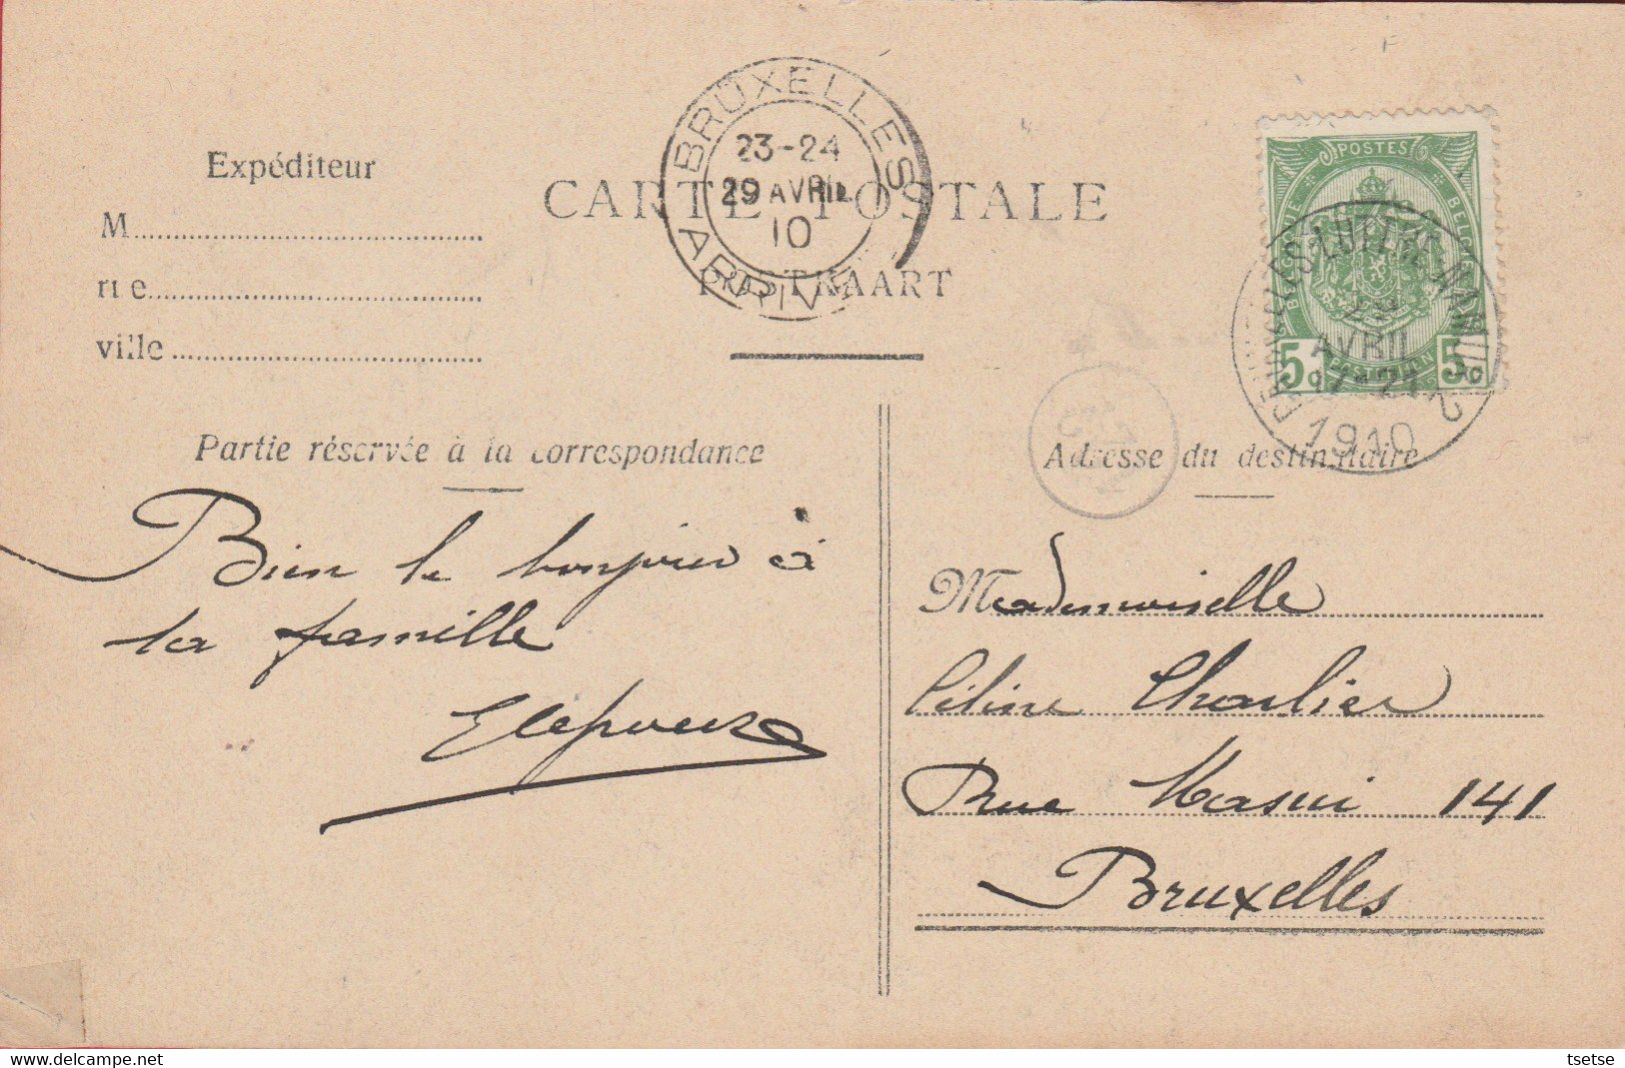 BRUXELLES
23-24
29 AVRIL
10
ARRIVÉE
Expéditeur
M
rue
ville
CARTE POSTALE
POSTKAART
POSTES
BELGIQUE
5c 5c
29
AVRIL
1910
Partie réservée à la correspondance
Bien le bonjour à
la famille
Adresse du destinataire
Mademoiselle
Céline Charlier
Rue Masui 141
Bruxelles
Delcampe.net
tsetse